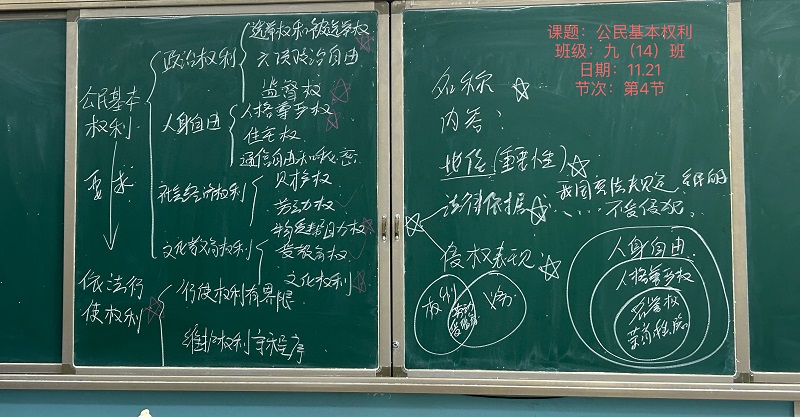 公民基本
权利
要求
依法行
使权利
政治权利
选举权和被选举权
六项政治自由
监督权
人身自由
人格尊严权
住宅权
通信自由和秘密
社会经济权利
财产权
劳动权
物质帮助权
文化教育权利
受教育权
文化权利
行使权利有界限
维护权利守程序
课题：公民基本权利
班级：九（14）班
日期：11.21
节次：第4节
名称
内容：
地位（重要性）
法律依据
我国宪法规定
不受侵犯。
侵权表现
权利
义务
劳动
受教育
人身自由
人格尊严权
名誉权
荣誉